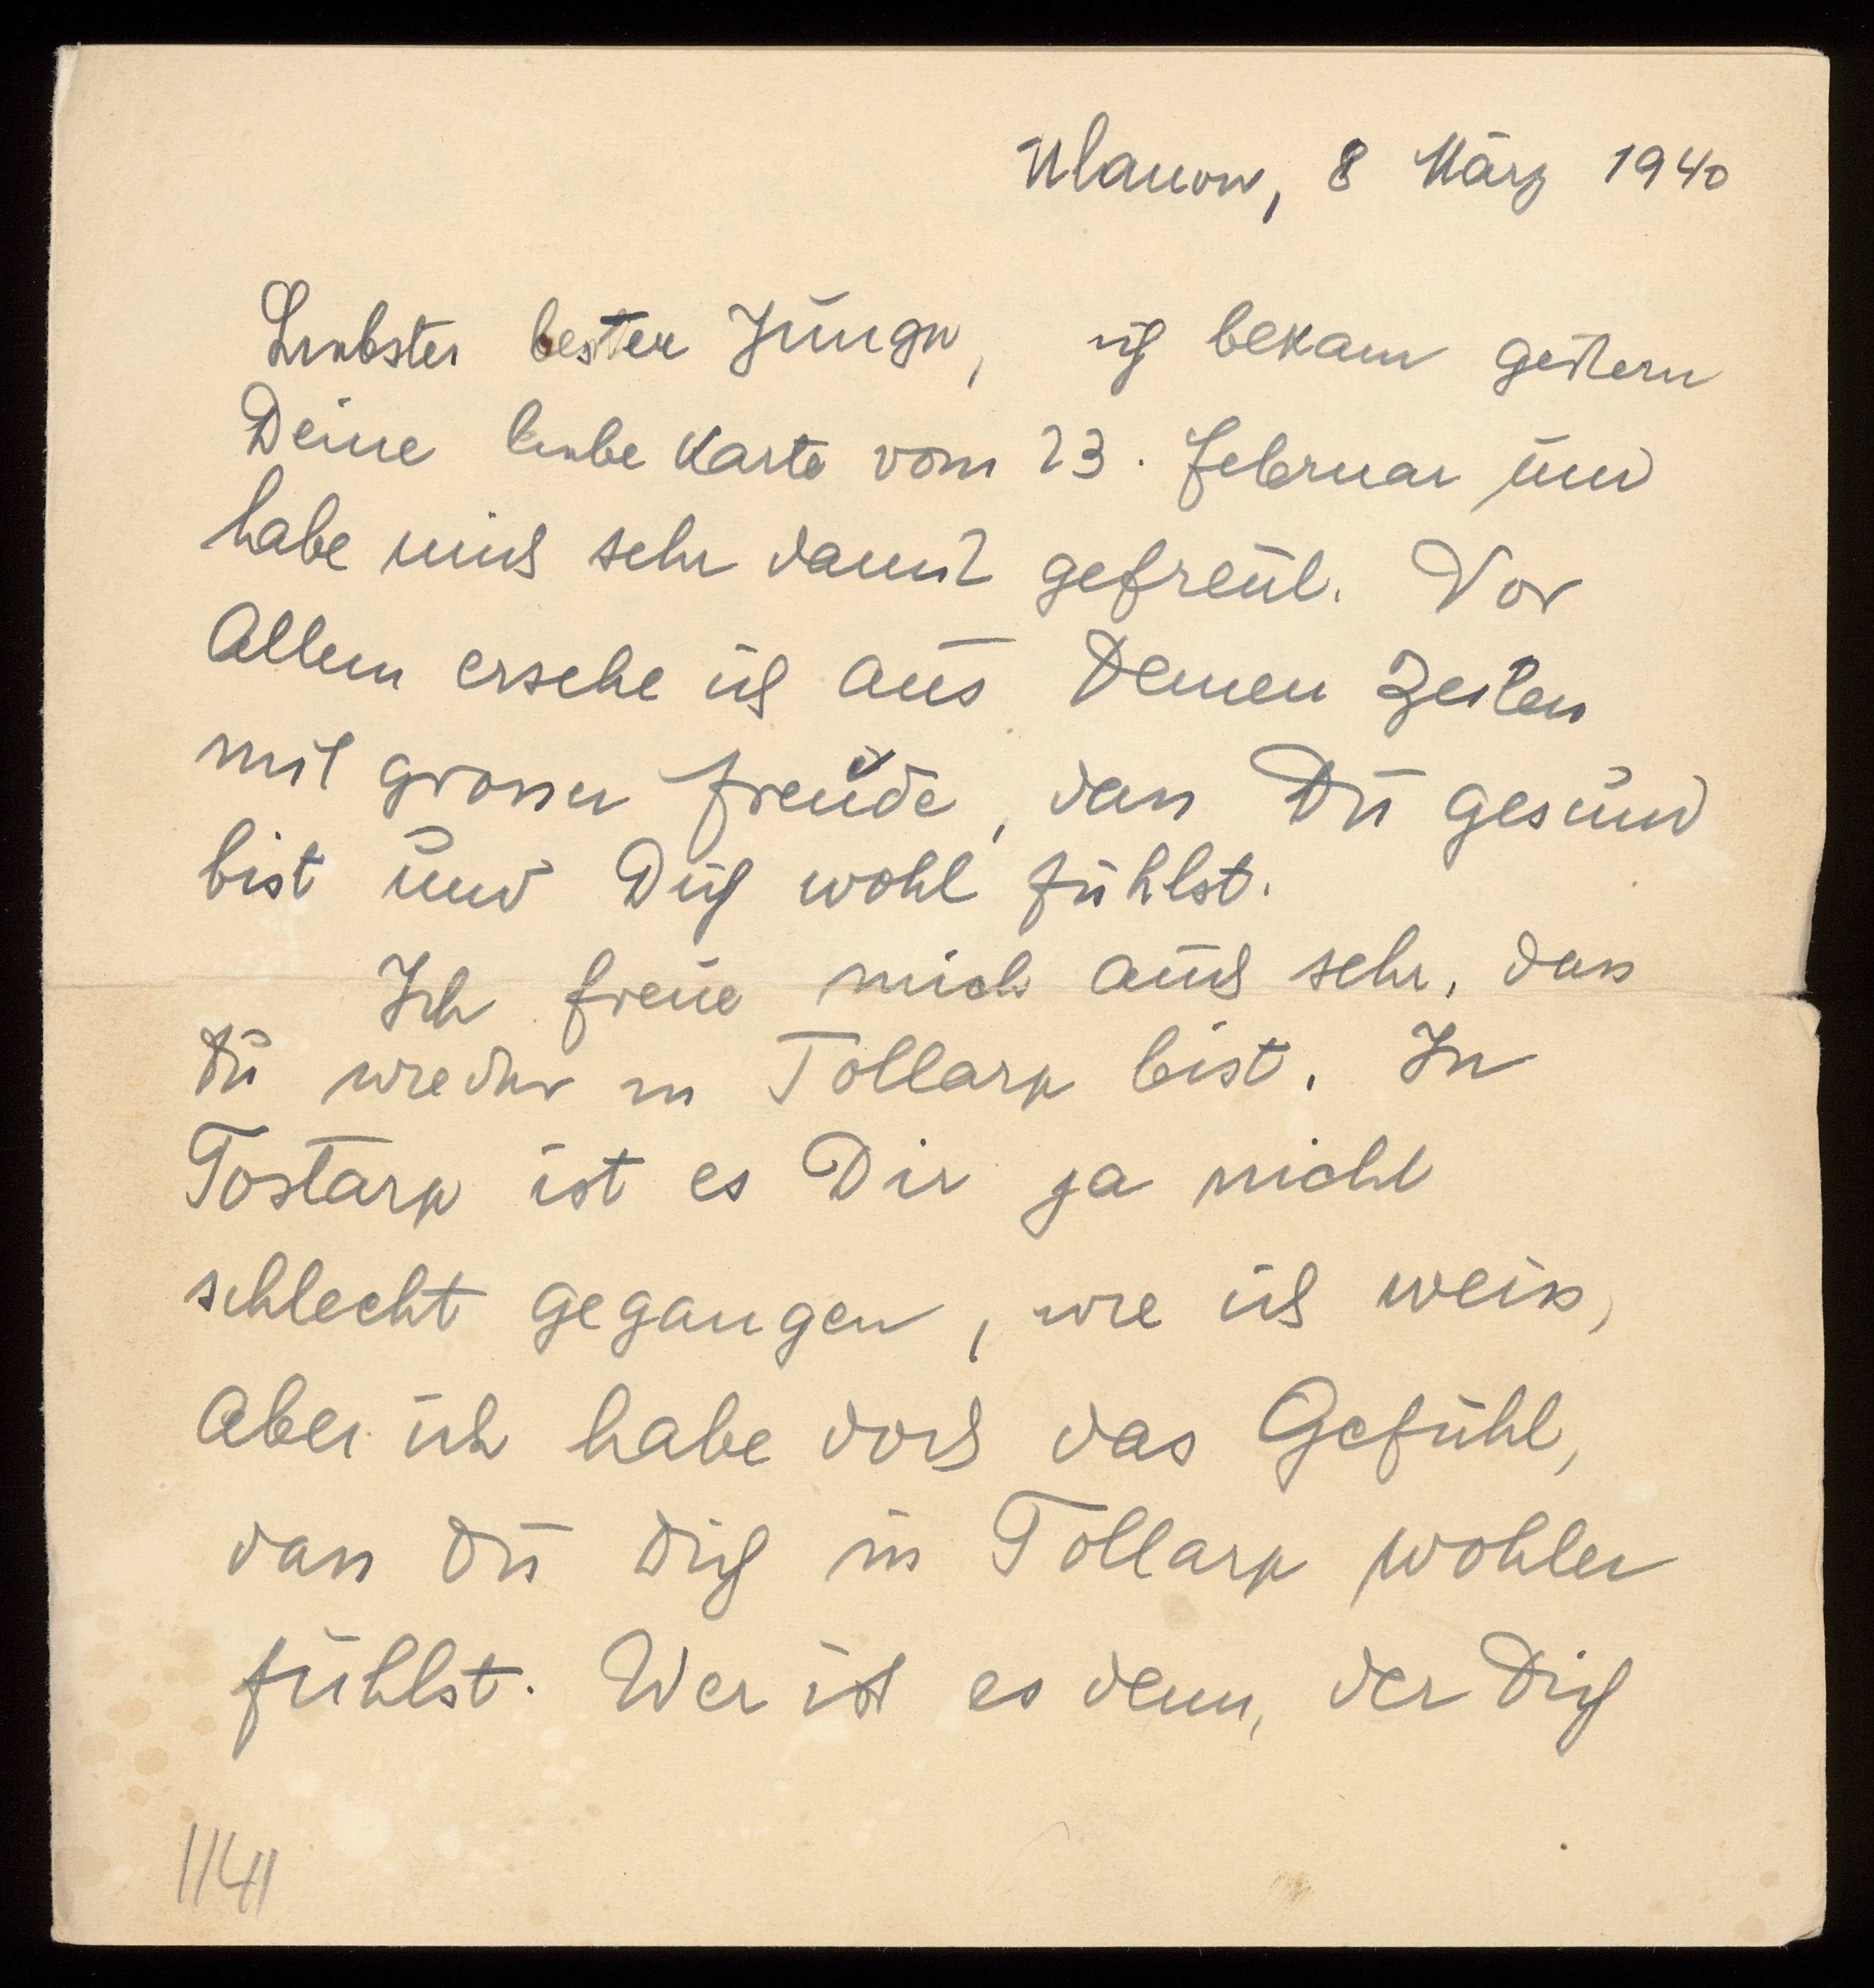 Ulanow, 8 März 1940
Liebster bester Junge, ich bekam gestern
Deine liebe Karte vom 23. Februar und
habe mich sehr damit gefreut. Vor
Allem ersehe ich aus Deinen Zeilen
mit grosser Freude, dass Du gesund
bist und Dich wohl fühlst.
Ich freue mich auch sehr, dass
Du wieder in Tollarp bist. In
Tostarp ist es Dir ja nicht
schlecht gegangen, wie ich weiss,
Aber ich habe doch das Gefühl,
dass Du Dich in Tollarp wohler
fühlst. Wer ist es denn, der Dich
1141